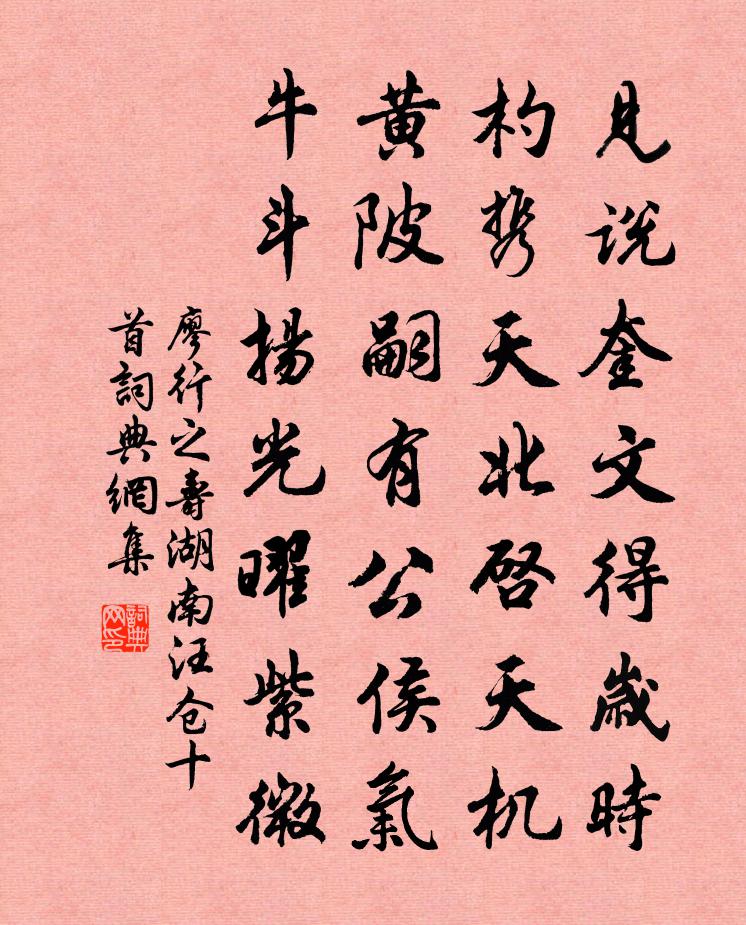 見説奎文得歲時
杓携天北啓天机
黄陂嗣有公侯氣
牛斗揚光曜紫微
廖行之壽湖南汪仓十
首詞典網集
詞典網印